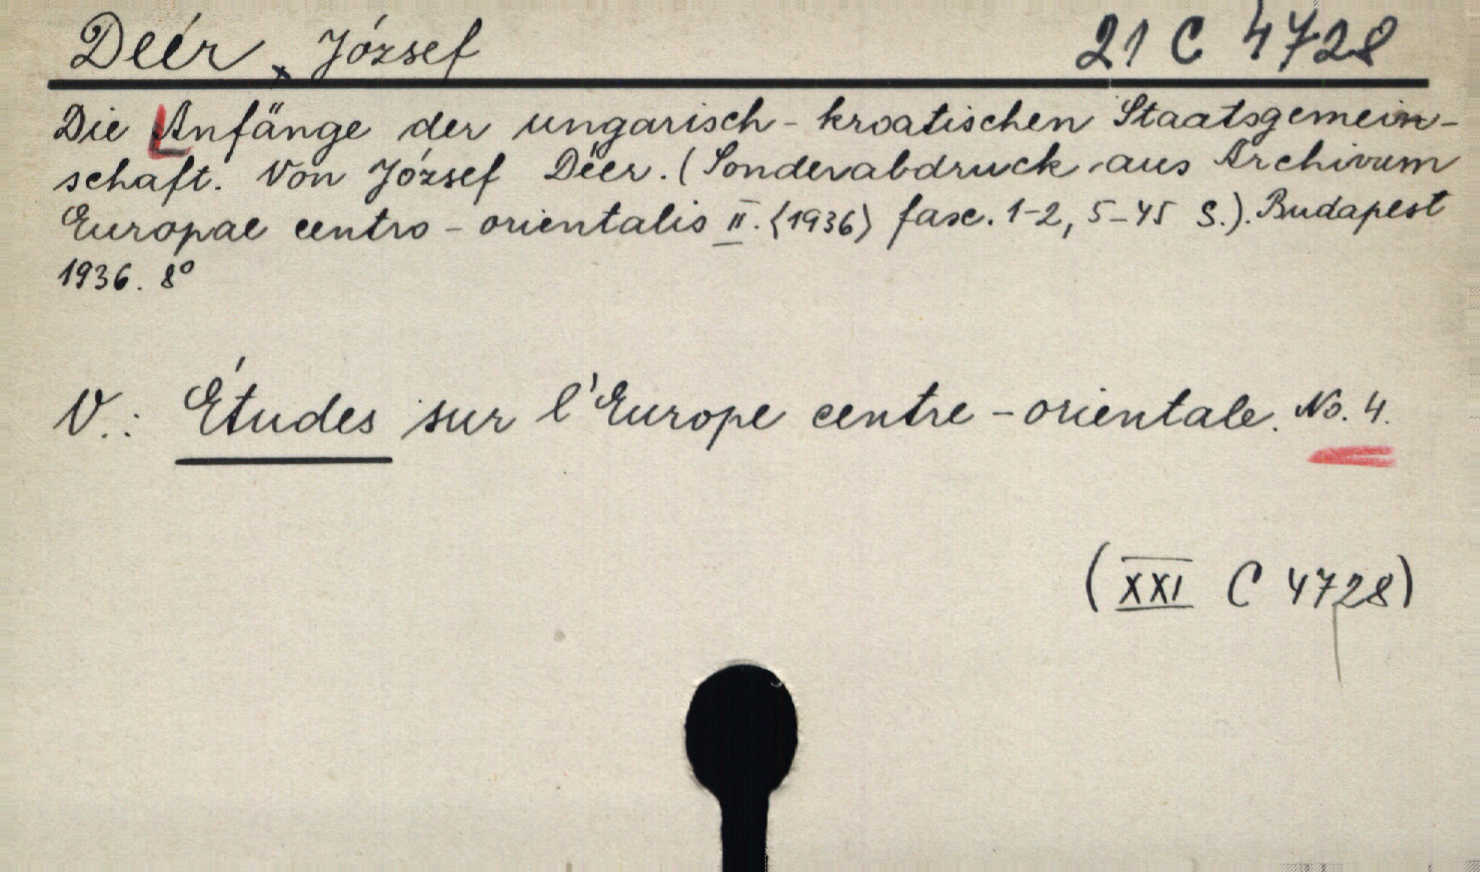 Deér, József 21 C 4728
Die Anfänge der ungarisch-kroatischen Staatsgemein-
schaft. Von József Déer. (Sonderabdruck aus Archivum
Europae centro-orientalis II. <1936> fasc. 1-2, 5-45 S.). Budapest
1936. 8°
V.: Études sur l'Europe centre-orientale. No. 4.
(XXI C 4728)